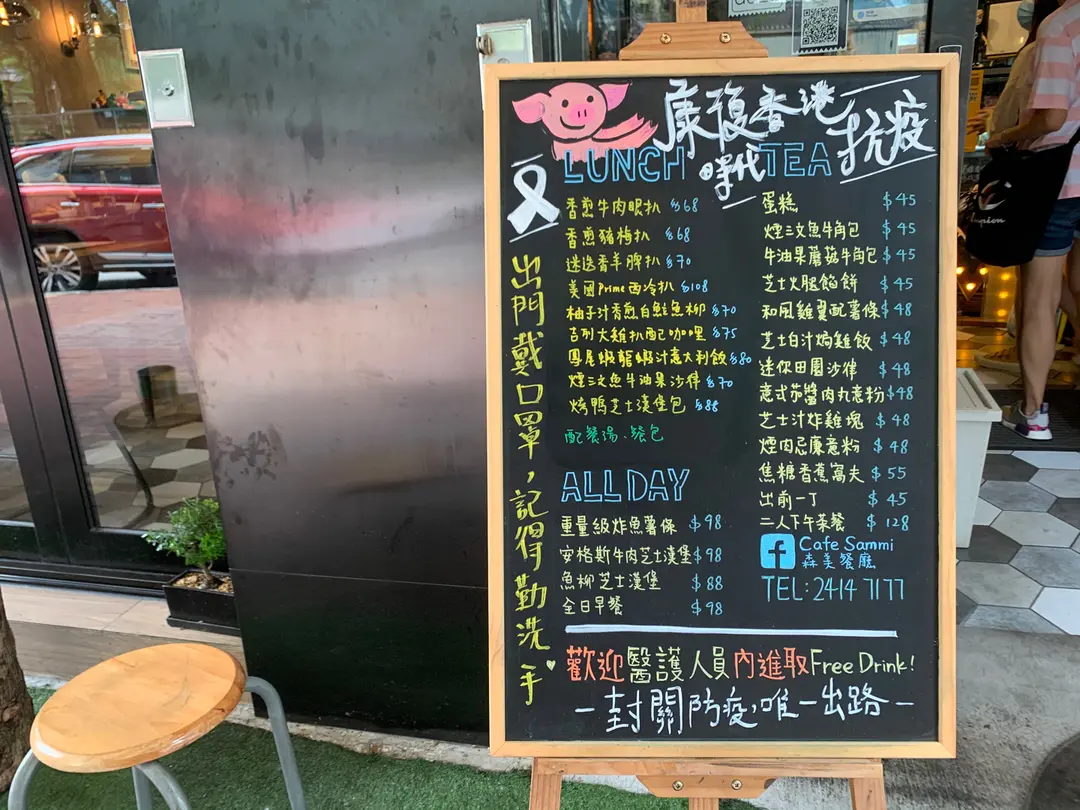 康復香港
時代
抗疫
LUNCH
香煎牛肉眼扒 $68
香煎豬梅扒 $68
迷迭香羊脾扒 $70
美國Prime西冷扒 $108
柚子汁香煎白鮭魚柳 $70
吉列大雞扒配咖哩 $75
鳳尾蝦龍蝦汁意大利飯 $80
煙三文魚牛油果沙律 $70
烤鴨芝士漢堡包 $88
配餐湯、餐包
ALL DAY
重量級炸魚薯條 $98
安格斯牛肉芝士漢堡 $98
魚柳芝士漢堡 $88
全日早餐 $98
TEA
蛋糕 $45
煙三文魚牛角包 $45
牛油果蘑菇牛角包 $45
芝士火腿餡餅 $45
和風雞翼配薯條 $48
芝士白汁焗雞飯 $48
迷你田園沙律 $48
意式茄醬肉丸意粉 $48
芝士汁炸雞塊 $48
煙肉忌廉意粉 $48
焦糖香蕉窩夫 $55
出前一丁 $45
二人下午茶餐 $128
f Cafe Sammi
森美餐廳
TEL: 2414 7177
出門戴口罩，記得勤洗手
歡迎醫護人員內進取Free Drink!
-封關防疫，唯一出路-